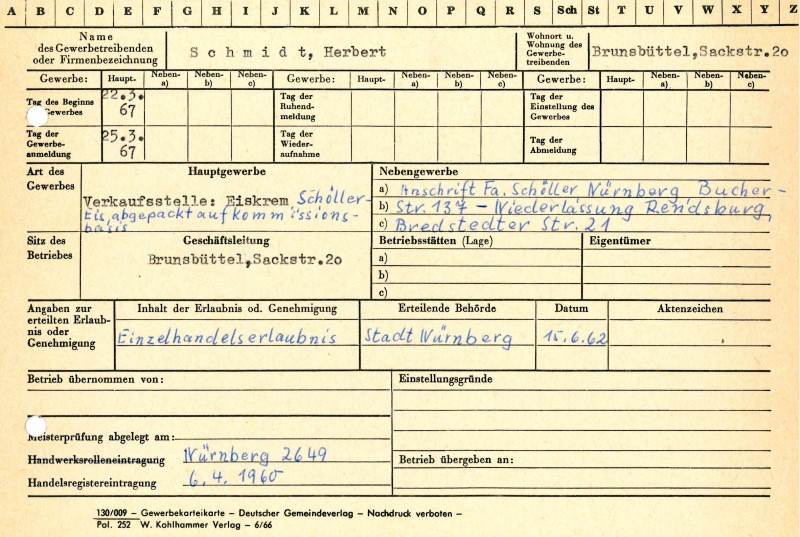 A B C D E F G H I J K L M N O P Q R S Sch St T U V W X Y Z
Name
des Gewerbetreibenden
oder Firmenbezeichnung
Schmidt, Herbert
Wohnort u.
Wohnung des
Gewerbe-
treibenden
Brunsbüttel,Sackstr.2o
Gewerbe: Haupt- Neben- a) Neben- b) Neben- c) Gewerbe: Haupt- Neben- a) Neben- b) Neben- c) Gewerbe: Haupt- Neben- a) Neben- b) Neben- c)
Tag des Beginns
Gewerbes
22.3.
67
Tag der
Ruhend-
meldung
Tag der
Einstellung des
Gewerbes
Tag der
Gewerbe-
anmeldung
25.3.
67
Tag der
Wieder-
aufnahme
Tag der
Abmeldung
Art des
Gewerbes
Hauptgewerbe
Verkaufsstelle: Eiskrem Schöller-
Eis, abgepackt auf Kommissions-
basis
Nebengewerbe
a) Anschrift Fa. Schöller Nürnberg Bucher-
b) Str. 137 - Niederlassung Rendsburg,
c) Bredstedter Str. 21
Sitz des
Betriebes
Geschäftsleitung
Brunsbüttel,Sackstr.2o
Betriebsstätten (Lage)
a)
b)
c)
Eigentümer
Angaben zur
erteilten Erlaub-
nis oder
Genehmigung
Inhalt der Erlaubnis od. Genehmigung
Einzelhandelserlaubnis
Erteilende Behörde
Stadt Nürnberg
Datum
15.6.62
Aktenzeichen
Betrieb übernommen von:
Einstellungsgründe
Meisterprüfung abgelegt am:
Handwerksrolleneintragung Nürnberg 2649
Handelsregistereintragung 6. 4. 1960
Betrieb übergeben an:
130/009 – Gewerbekarteikarte – Deutscher Gemeindeverlag – Nachdruck verboten –
Pol. 252 W. Kohlhammer Verlag – 6/66